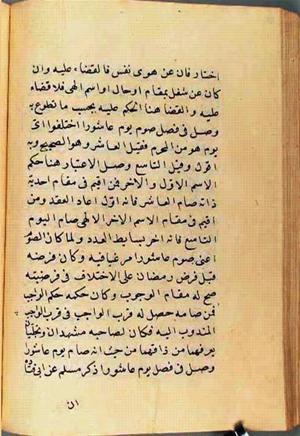 اختار فان عن هوى نفس فالقضاء عليه وان
كان عن شغل بمقام او حال او اسم الهى فلا قضاء
عليه والقضا هنا الحكم عليه بحسب ما تطوع به
وصل فى فصل صوم يوم عاشورا اختلفوا اى
يوم هو من المحرم فقيل العاشر وهو الصحيح وبه
اقول وقيل التاسع وصل الاعتبار هنا حكم
الاسم الاول والاخر فمن اقيم فى مقام احدية
ذاته صام العاشر فانه اول احاد العقد ومن
اقيم فى مقام الاسم الاخر الالهى صام اليوم
التاسع فانه اخر بسايط العدد ولما كان الصوم
اعنى صوم عاشورا مرغبا فيه وكان فرضه
قبل فرض رمضان على الاختلاف فى فرضيته
صح له مقام الوجوب وكان حكمه حكم الواجب
فمن صامه حصل له قرب الواجب فى قرب
المندوب اليه فكان لصاحبه مشهدان وتجليان
يعرفهما من ذاقهما من حيث انه صام يوم عاشورا
وصل فى فصل يوم عاشورا ذكر مسلم عن ابى قتادة